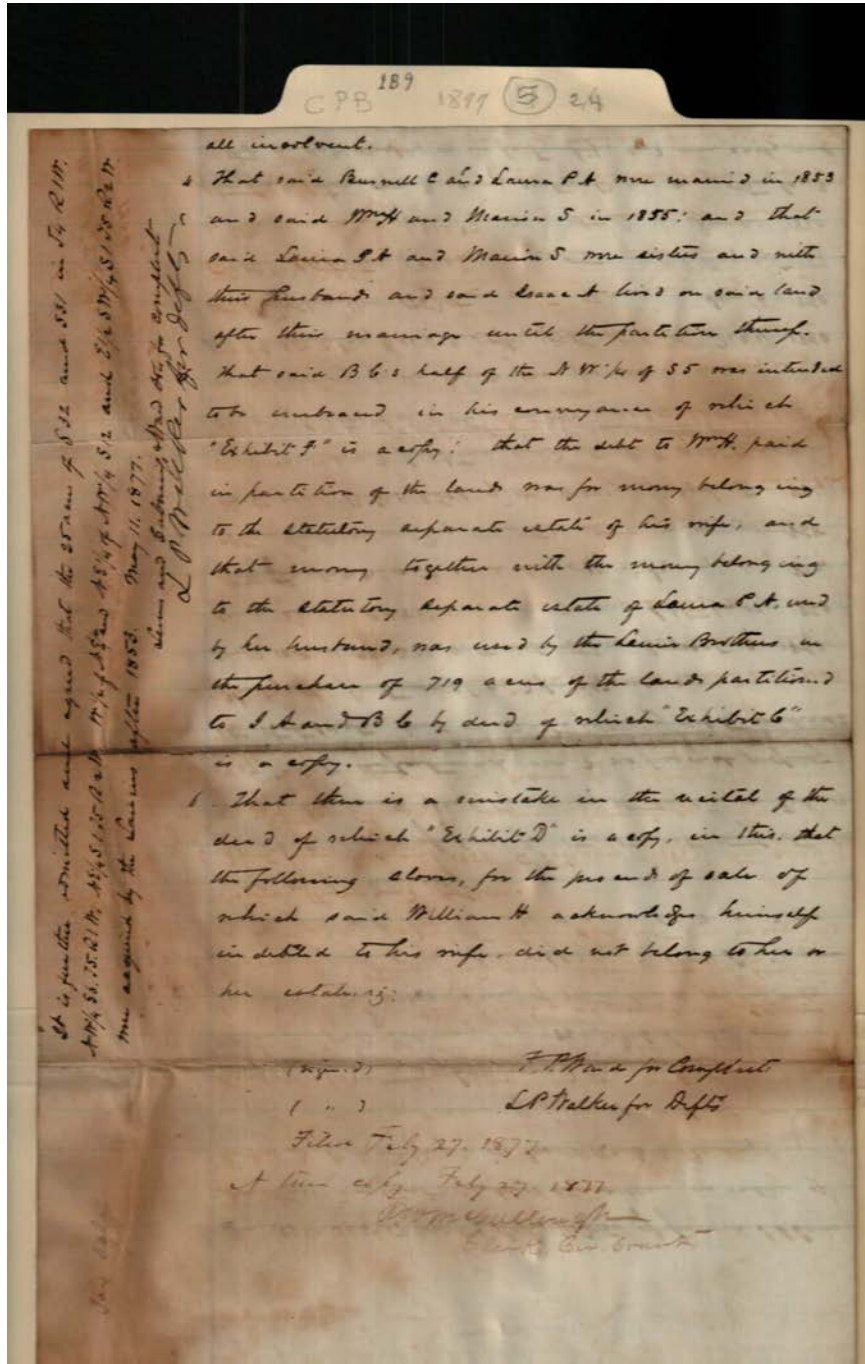 189
CPB 1877 (5) 24
all insolvent.
4 That said Burnell C and Laura P A were married in 1853
5 and said Wm H and Marion S in 1855: and that
said Laura P A and Marion S were sisters and with
their husbands and said Isaac A lived on said land
after their marriage until the partition thereof.
That said B C's half of the N W ¼ of S5 was intended
to be embraced in his conveyance of which
"Exhibit F" is a copy: that the debt to Wm H. paid
in partition of the lands was for money belonging
to the statutory separate estate of his wife, and
that money together with the money belonging
to the statutory separate estate of Laura P A. used
by her husband, was used by the Lewis Brothers in
the purchase of 719 acres of the lands partitioned
to I A and B C by deed of which "Exhibit C"
is a copy.
6. That there is a mistake in the recital of the
deed of which "Exhibit D" is a copy, in this, that
the following slaves, for the proceeds of sale of
which said William H acknowledges himself
indebted to his wife, did not belong to her or
her estate. viz:
(signed) F. P. Ward for Complnt
( " ) L P Walker for Defts
Filed Feby 27. 1877
A true copy Feby 27. 1877.
Clerk Cir. Court
It is further admitted and agreed that the 25 acres of S32 and S31 in T4 R1W.
were acquired by the Lewises after 1853. May 11. 1877.
for complnt
L P Walker for Defts